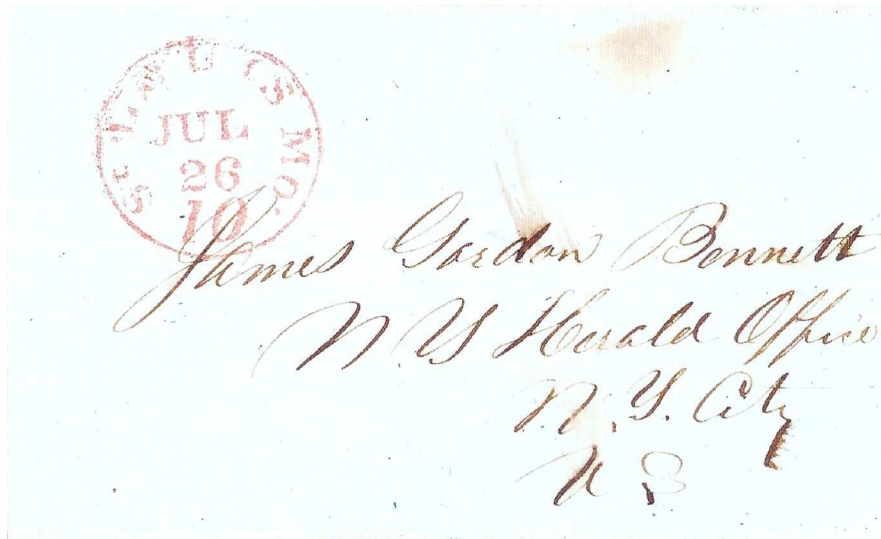 St LOUIS MO.
JUL
26
10
James Gordon Bennett
N. Y Herald Office
N. Y. City
U S